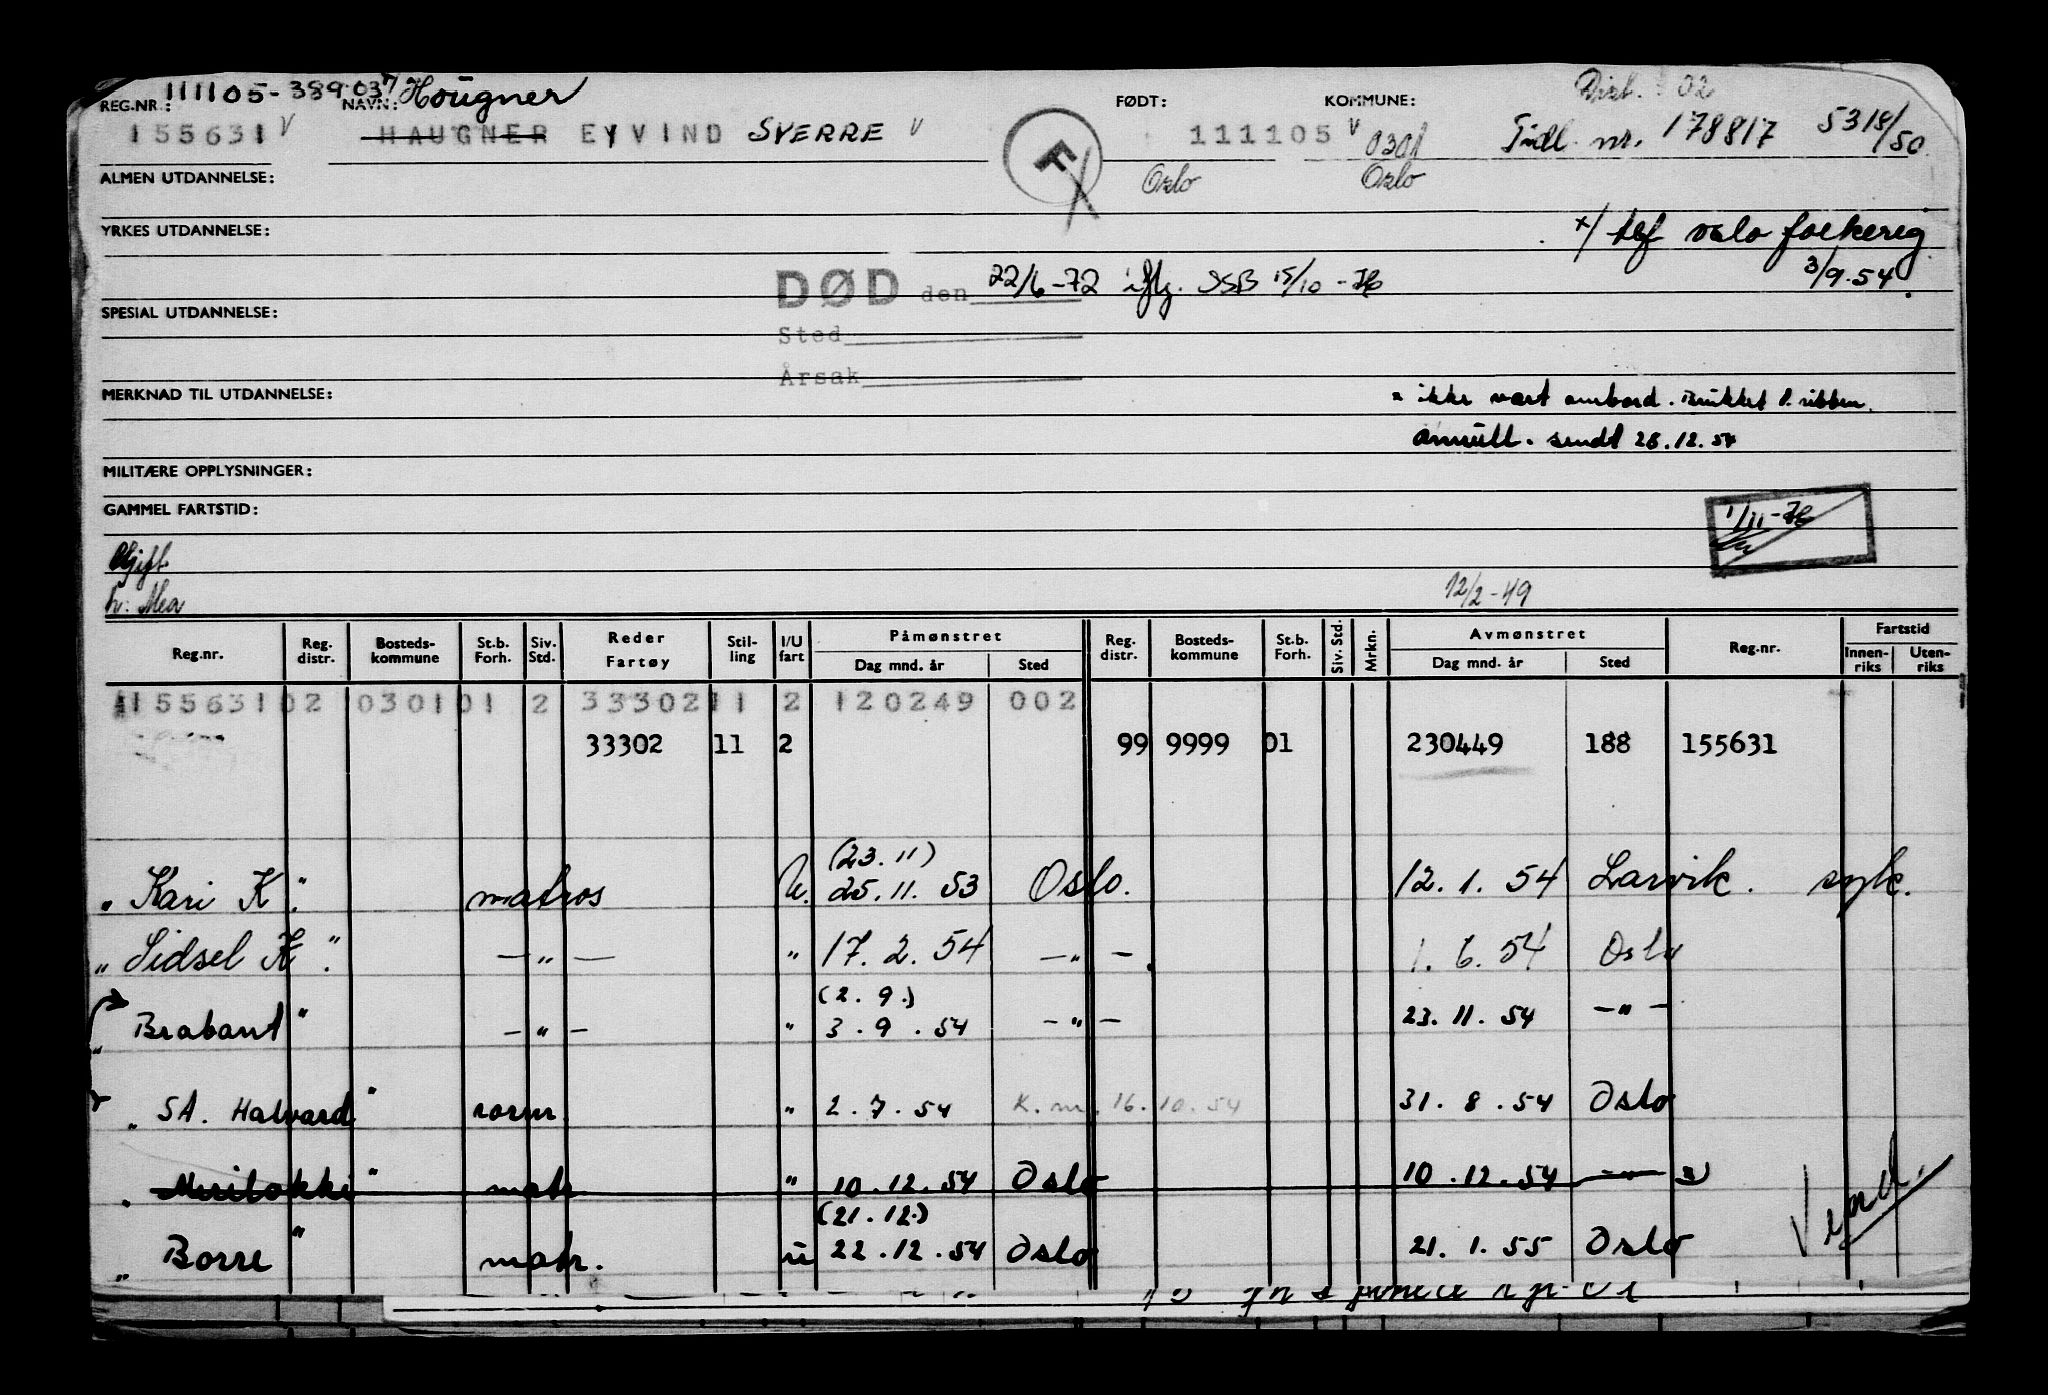 111105-389.03 Hougner Dist. 02
REG.NR.: NAVN: FØDT: KOMMUNE:
155631 V HAUGNER EYVIND SVERRE V F 111105 V 0301 Tidl. nr. 178817 5318/50
ALMEN UTDANNELSE: Oslo Oslo
YRKES UTDANNELSE: x/ tlf oslo folkereg
3/9.54.
DØD den 22/6-72 iflg. SSB 15/10
SPESIAL UTDANNELSE:
Sted
Årsak
MERKNAD TIL UTDANNELSE: ikke vært ombord. Brukket 1. ribben.
annull. sendt 28.12.54
MILITÆRE OPPLYSNINGER:
GAMMEL FARTSTID: 1/11
Gift
h: Mea 12/2-49
Reg.nr. Reg. distr. Bosteds-kommune St.b. Forh. Siv. Std. Reder Fartøy Stil-ling I/U fart Påmønstret Dag mnd. år Sted Reg. distr. Bosteds-kommune St.b. Forh. Siv. Std. Mrkn. Avmønstret Dag mnd. år Sted Reg.nr. Fartstid Innen-riks Uten-riks
155631 02 0301 01 2 33302 11 2 120249 002
33302 11 2 99 9999 01 230449 188 155631
(23.11)
" Kari K." matros U. 25.11.53 Oslo. 12.1.54 Larvik. syk.
" Sidsel K." — " — " 17.2.54 — " — 1.6.54 Oslo
(2.9.)
" Brabant " — " — " 3.9.54 — " — 23.11.54 — " —
" SA. Halvard " " 2.7.54 K.m. 16.10.54 31.8.54 Oslo
" " matr " 10.12.54 Oslo 10.12.54 —
(21.12.)
" Borre " matr. u 22.12.54 Oslo 21.1.55 Oslo